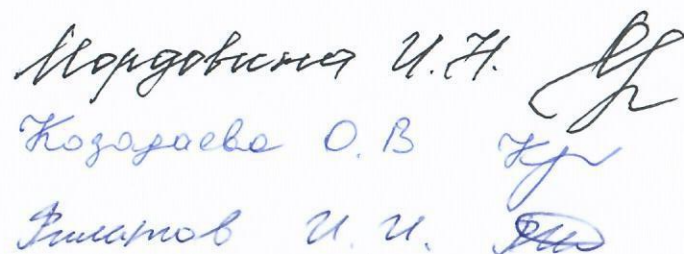 Мордовина И.Н.
Козадаева О.В
Филатов И.И.